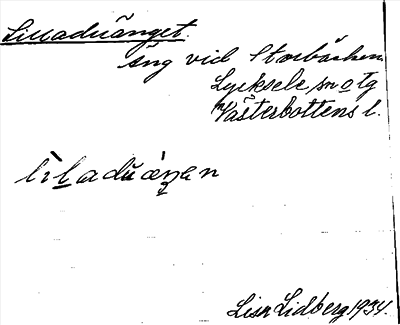 Lilladuänget.
Äng vid Storbäcken
Lycksele sn o tg
Västerbottens l.
lìladuáŋen
Lisa Lidberg 1934.